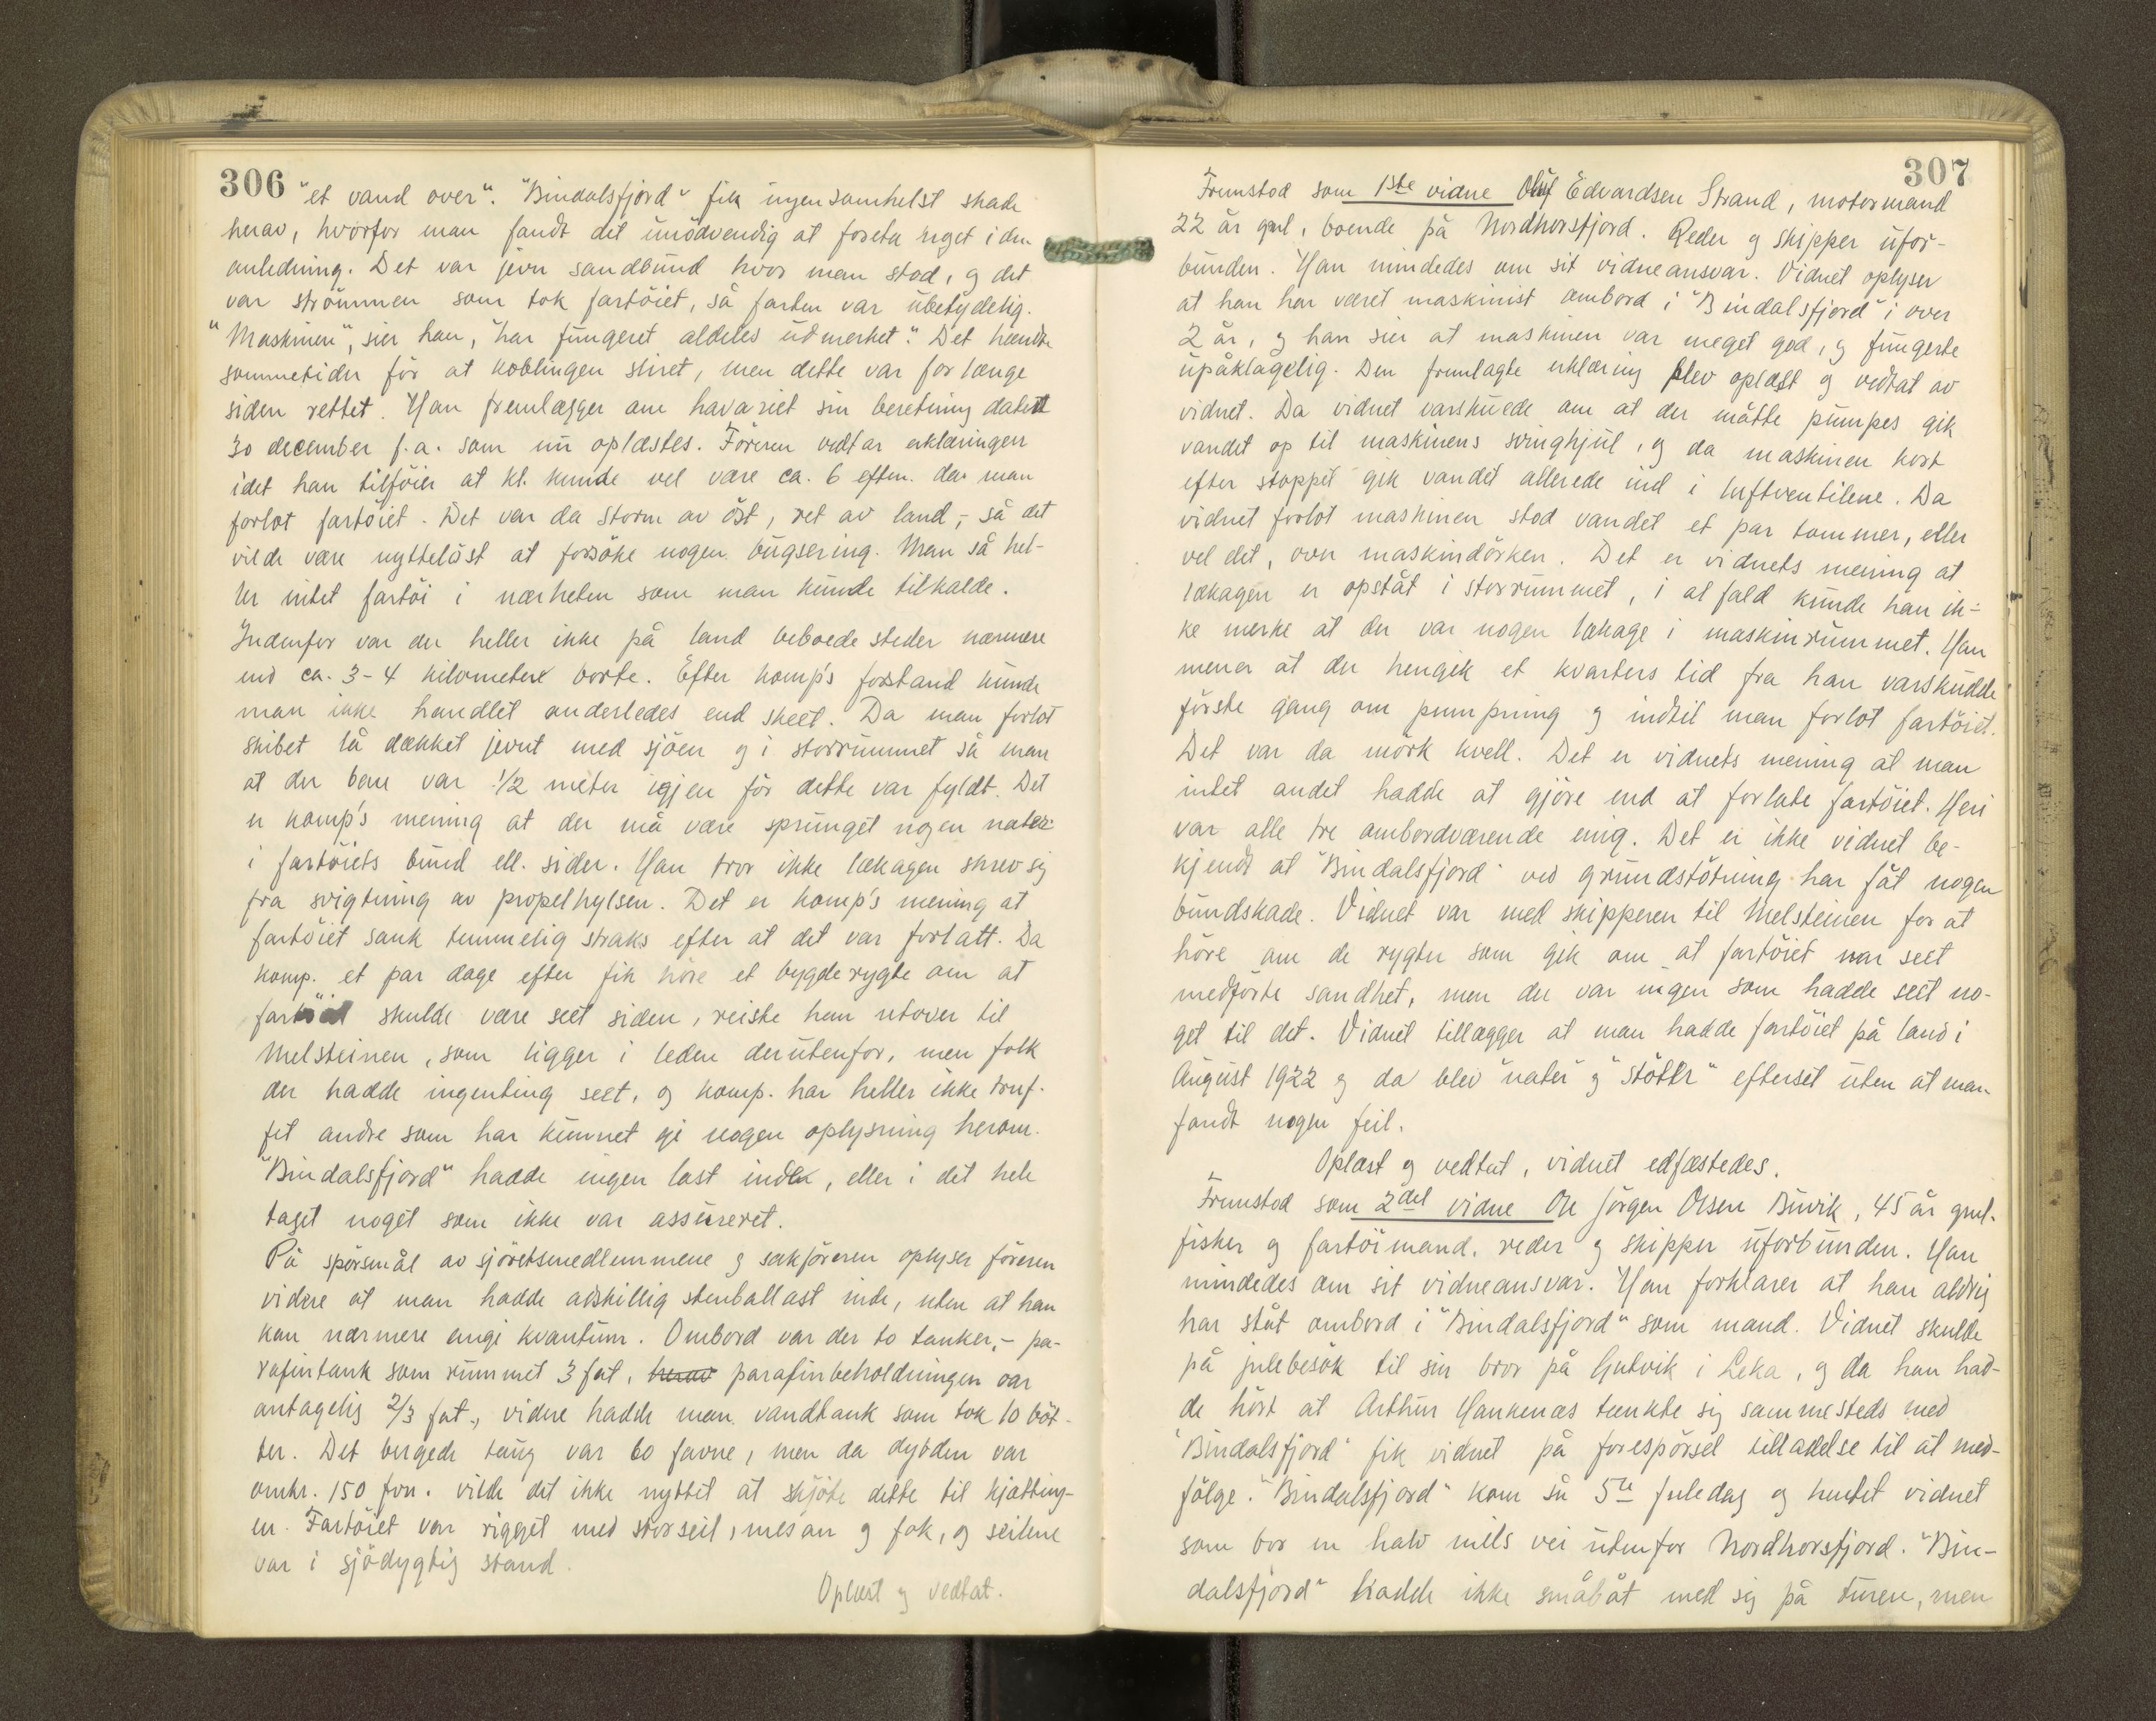 306
"et vand over". "Bindalsfjord" fik ingensomhelst skade
herav, hvorfor man fandt det unödvendig at foreta noget i den
anledning. Det var jevn sandbund hvor man stod, og det
var strömmen som tok fartöiet, så farten var ubetydelig.
"Maskinen", sier han, "har fungeret aldeles udmerket". Det hændte
sommetider för at koblingen sluret, men dette var for længe
siden rettet. Han fremlægger om havariet sin beretning datert
30 december f.a. som nu oplæstes. Föreren vedtar erklæringen
idet han tilföier at kl. kunde vel være ca. 6 efterm. da man
forlot fartöiet. Det var da storm av öst, ret av land,- så det
vilde være nyttelöst at forsöke nogen bugsering. Man så hel-
ler intet fartöi i nærheten som man kunde tilkalde.
Indenfor var der heller ikke på land beboede steder nærmere
end ca. 3-4 kilometer borte. Efter komp's forstand kunde
man ikke handlet anderledes end skeet. Da man forlot
skibet lå dækket jevnt med sjöen og i storrummet så man
at der bare var 1/2 meter igjen för dette var fyldt. Det
er komp's mening at der må være sprunget nogen nater
i fartöiets bund ell. sider. Han tror ikke lækagen skrev sig
fra svigtning av propelhylsen. Det er komp's mening at
fartöiet sank temmelig straks efter at det var forlatt. Da
komp. et par dage efter fik höre et bygderygte om at
fartöiet skulde være seet siden, reiste han utover til
Melsteinen, som ligger i leden derutenfor, men folk
der hadde ingenting seet, og komp. har heller ikke truf-
fet andre som har kunnet gi nogen oplysning herom.
"Bindalsfjord" hadde ingen last inde, eller i det hele
taget noget som ikke var assureret.
På spörsmål av sjöretsmedlemmene og sakföreren oplyser föreren
videre at man hadde adskillig stenballast inde, uten at han
kan nærmere angi kvantum. Ombord var der to tanker,- pa-
rafintank som rummet 3 fat, herav parafinbeholdningen var
antagelig 2/3 fat., videre hadde man vandtank som tok 10 böt-
ter. Det bergede taug var 60 favne, men da dybden var
omkr. 150 fvn. vilde det ikke nyttet at skjöte dette til kjætting-
en. Fartöiet var rigget med storseil, mesan og fok, og seilene
var i sjödygtig stand.
Oplæst og vedtat.
307
Fremstod som 1ste vidne Oluf Edvardsen Strand, motormand
22 år gml, boende på Nordhorsfjord. Reder og skipper ufor-
bunden. Han mindedes om sit vidneansvar. Vidnet oplyser
at han har været maskinist ombord i "Bindalsfjord" i over
2 år, og han sier at maskinen var meget god, og fungerte
upåklagelig. Den fremlagte erklæring blev oplæst og vedtat av
vidnet. Da vidnet varskuede om at der måtte pumpes gik
vandet op til maskinens svinghjul, og da maskinen kort
efter stoppet gik vandet allerede ind i luftventilene. Da
vidnet forlot maskinen stod vandet et par tommer, eller
vel det, over maskindörken. Det er vidnets mening at
lækagen er opståt i storrummet, i al fald kunde han ik-
ke merke at der var nogen lækage i maskinrummet. Han
mener at der hengik et kvarters tid fra han varskudde
förste gang om pumpning og indtil man forlot fartöiet.
Det var da mörk kvell. Det er vidnets mening at man
intet andet hadde at gjöre end at forlate fartöiet. Heri
var alle tre ombordværende enig. Det er ikke vidnet be-
kjendt at "Bindalsfjord" ved grundstötning har fåt nogen
bundskade. Vidnet var med skipperen til Melsteinen for at
höre om de rygter som gik om at fartöiet var seet
medförte sandhet, men der var ingen som hadde seet no-
get til det. Vidnet tillægger at man hadde fartöiet på land i
August 1922 og da blev "nater" og "stötter" efterset uten at man
fandt nogen feil.
Oplæst og vedtat, vidnet edfæstedes.
Fremstod som 2det vidne Ole Jörgen Olsen Buvik, 45 år gml.
fisker og fartöimand. reder og skipper uforbunden. Han
mindedes om sit vidneansvar. Han forklarer at han aldrig
har ståt ombord i "Bindalsfjord" som mand. Vidnet skulde
på julebesök til sin bror på Gutvik i Leka, og da han had-
de hört at Arthur Hankenæs tænkte sig sammesteds med
"Bindalsfjord" fik vidnet på forespörsel tilladelse til at med-
fölge. "Bindalsfjord" kom så 5te juledag og hentet vidnet
som bor en halv mils vei utenfor Nordhorsfjord. "Bin-
dalsfjord" hadde ikke småbåt med sig på turen, men